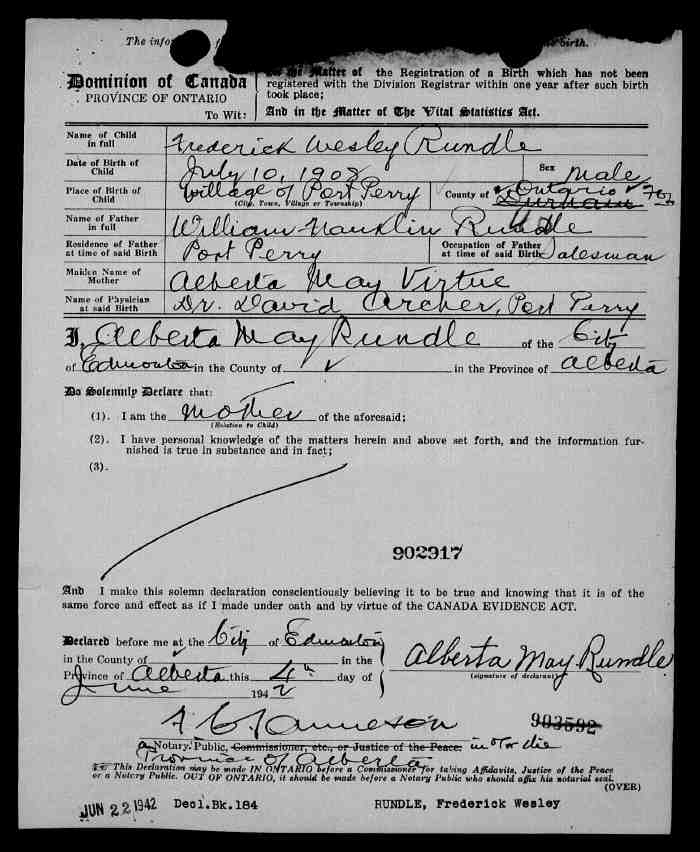 The infor
birth.
Dominion of Canada
PROVINCE OF ONTARIO
To Wit:
In the Matter of the Registration of a Birth which has not been
registered with the Division Registrar within one year after such birth
took place;
And in the Matter of The Vital Statistics Act.
Name of Child in full Frederick Wesley Rundle
Date of Birth of Child July 10, 1908 Sex Male
Place of Birth of Child Village of Port Perry County of Ontario Durham
(City, Town, Village or Township)
Name of Father in full William Rundle
Residence of Father at time of said Birth Port Perry Occupation of Father at time of said Birth Salesman
Maiden Name of Mother Alberta May Virtue
Name of Physician at said Birth Dr. David Archer, Port Perry
I, Alberta May Rundle of the City
of Edmonton in the County of in the Province of Alberta
Do Solemnly Declare that:
(1). I am the Mother of the aforesaid;
(Relation to Child)
(2). I have personal knowledge of the matters herein and above set forth, and the information fur-
nished is true in substance and in fact;
(3).
902917
And I make this solemn declaration conscientiously believing it to be true and knowing that it is of the
same force and effect as if I made under oath and by virtue of the CANADA EVIDENCE ACT.
Declared before me at the City of Edmonton
in the County of in the
Province of Alberta this 4th day of
June 1942
Alberta May Rundle
(signature of declarant)
903592
a Notary Public, Commissioner, etc., or Justice of the Peace. in & for the
Province of Alberta
This Declaration may be made IN ONTARIO before a Commissioner for taking Affidavits, Justice of the Peace
or a Notary Public. OUT OF ONTARIO, it should be made before a Notary Public who should affix his notarial seal.
(OVER)
JUN 22 1942 Decl.Bk.184 RUNDLE, Frederick Wesley